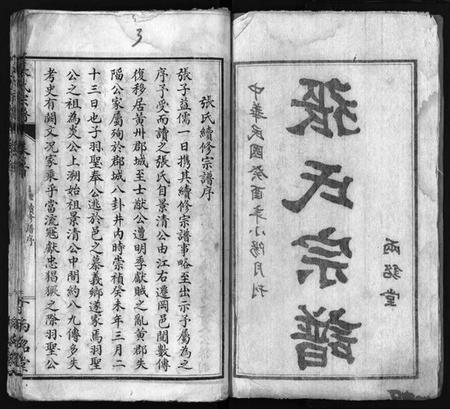 張氏宗譜
中華民國癸酉年小陽月刊
兩銘堂
3
張氏續修宗譜序
張子益儒一日携其續修宗譜事略至出示予屬為之
序予受而讀之張氏自景清公由江右遷岡邑閱數傳
復移居黃州郡城至士猷公遭明季獻賊之亂黃郡失
陷公家屬殉於郡城八卦井内時崇禎癸未年三月二
十三日也子羽聖奉公逃於邑之慕義鄉遂家焉羽聖
公之祖為炎公上溯始祖景清公中間約八九傳多失
考史有闕文况家乘乎當流寇獻忠猖獗之際羽聖公
張氏宗譜
卷首
續修譜序
兩銘堂